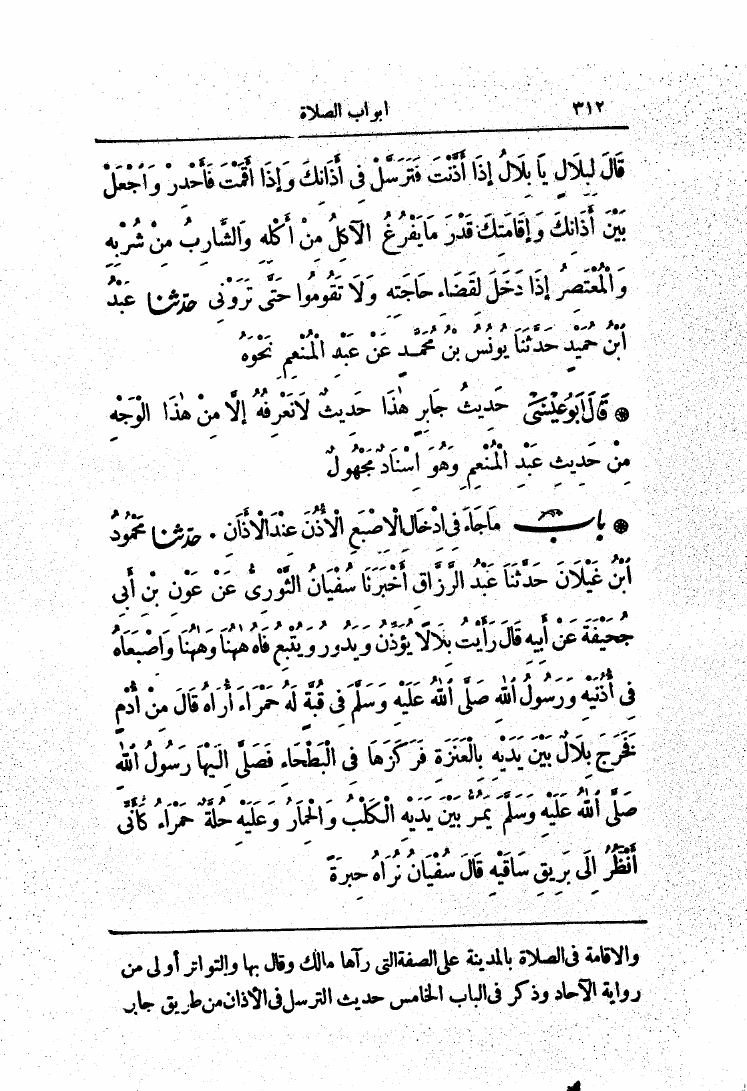 ٣١٢
ابواب الصلاة
قَالَ لِبِلَالٍ يَا بِلَالُ إِذَا أَذَّنْتَ فَتَرَسَّلْ فِي أَذَانِكَ وَإِذَا أَقَمْتَ فَأَحْدِرْ وَاجْعَلْ
بَيْنَ أَذَانِكَ وَإِقَامَتِكَ قَدْرَ مَا يَفْرُغُ الْآكِلُ مِنْ أَكْلِهِ وَالشَّارِبُ مِنْ شُرْبِهِ
وَالْمُعْتَصِرُ إِذَا دَخَلَ لِقَضَاءِ حَاجَتِهِ وَلَا تَقُومُوا حَتَّى تَرَوْنِي حدثنا عَبْدُ
ابْنُ حُمَيْدٍ حَدَّثَنَا يُونُسُ بْنُ مُحَمَّدٍ عَنْ عَبْدِ الْمُنْعِمِ نَحْوَهُ
* قَالَ أَبُو عِيسَى حَدِيثُ جَابِرٍ هٰذَا حَدِيثٌ لَا نَعْرِفُهُ إِلَّا مِنْ هٰذَا الْوَجْهِ
مِنْ حَدِيثِ عَبْدِ الْمُنْعِمِ وَهُوَ إِسْنَادٌ مَجْهُولٌ
* باب مَا جَاءَ فِي ادْخَالِ الْاصْبَعِ الْأُذُنَ عِنْدَ الْأَذَانِ . حدثنا مَحْمُودُ
ابْنُ غَيْلَانَ حَدَّثَنَا عَبْدُ الرَّزَّاقِ أَخْبَرَنَا سُفْيَانُ الثَّوْرِيُّ عَنْ عَوْنِ بْنِ أَبِي
جُحَيْفَةَ عَنْ أَبِيهِ قَالَ رَأَيْتُ بِلَالًا يُؤَذِّنُ وَيَدُورُ وَيُتْبِعُ فَاهُ هٰهُنَا وَهٰهُنَا وَاصْبَعَاهُ
فِي أُذُنَيْهِ وَرَسُولُ اللهِ صَلَّى اللهُ عَلَيْهِ وَسَلَّمَ فِي قُبَّةٍ لَهُ حَمْرَاءَ أُرَاهُ قَالَ مِنْ أَدَمٍ
فَخَرَجَ بِلَالٌ بَيْنَ يَدَيْهِ بِالْعَنَزَةِ فَرَكَزَهَا فِي الْبَطْحَاءِ فَصَلَّى إِلَيْهَا رَسُولُ اللهِ
صَلَّى اللهُ عَلَيْهِ وَسَلَّمَ يَمُرُّ بَيْنَ يَدَيْهِ الْكَلْبُ وَالْحِمَارُ وَعَلَيْهِ حُلَّةٌ حَمْرَاءُ كَأَنِّي
أَنْظُرُ إِلَى بَرِيقِ سَاقَيْهِ قَالَ سُفْيَانُ نُرَاهُ حِبَرَةً
والاقامة في الصلاة بالمدينة على الصفة التى رآها مالك وقال بها والتواتر أولى من
رواية الآحاد وذكر فى الباب الخامس حديث الترسل فى الأذان من طريق جابر